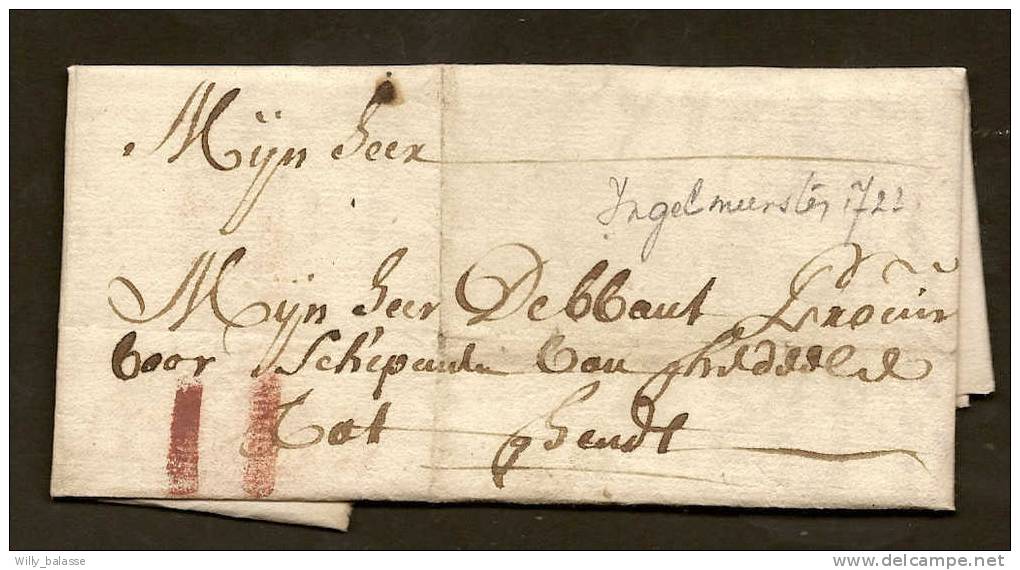 Mijn heer
Ingelmunster 1722
Mijn heer Debbaut Procur
voor Schepenen van ghedeele
Tot Ghendt
Willy_balasse
delcampe.net